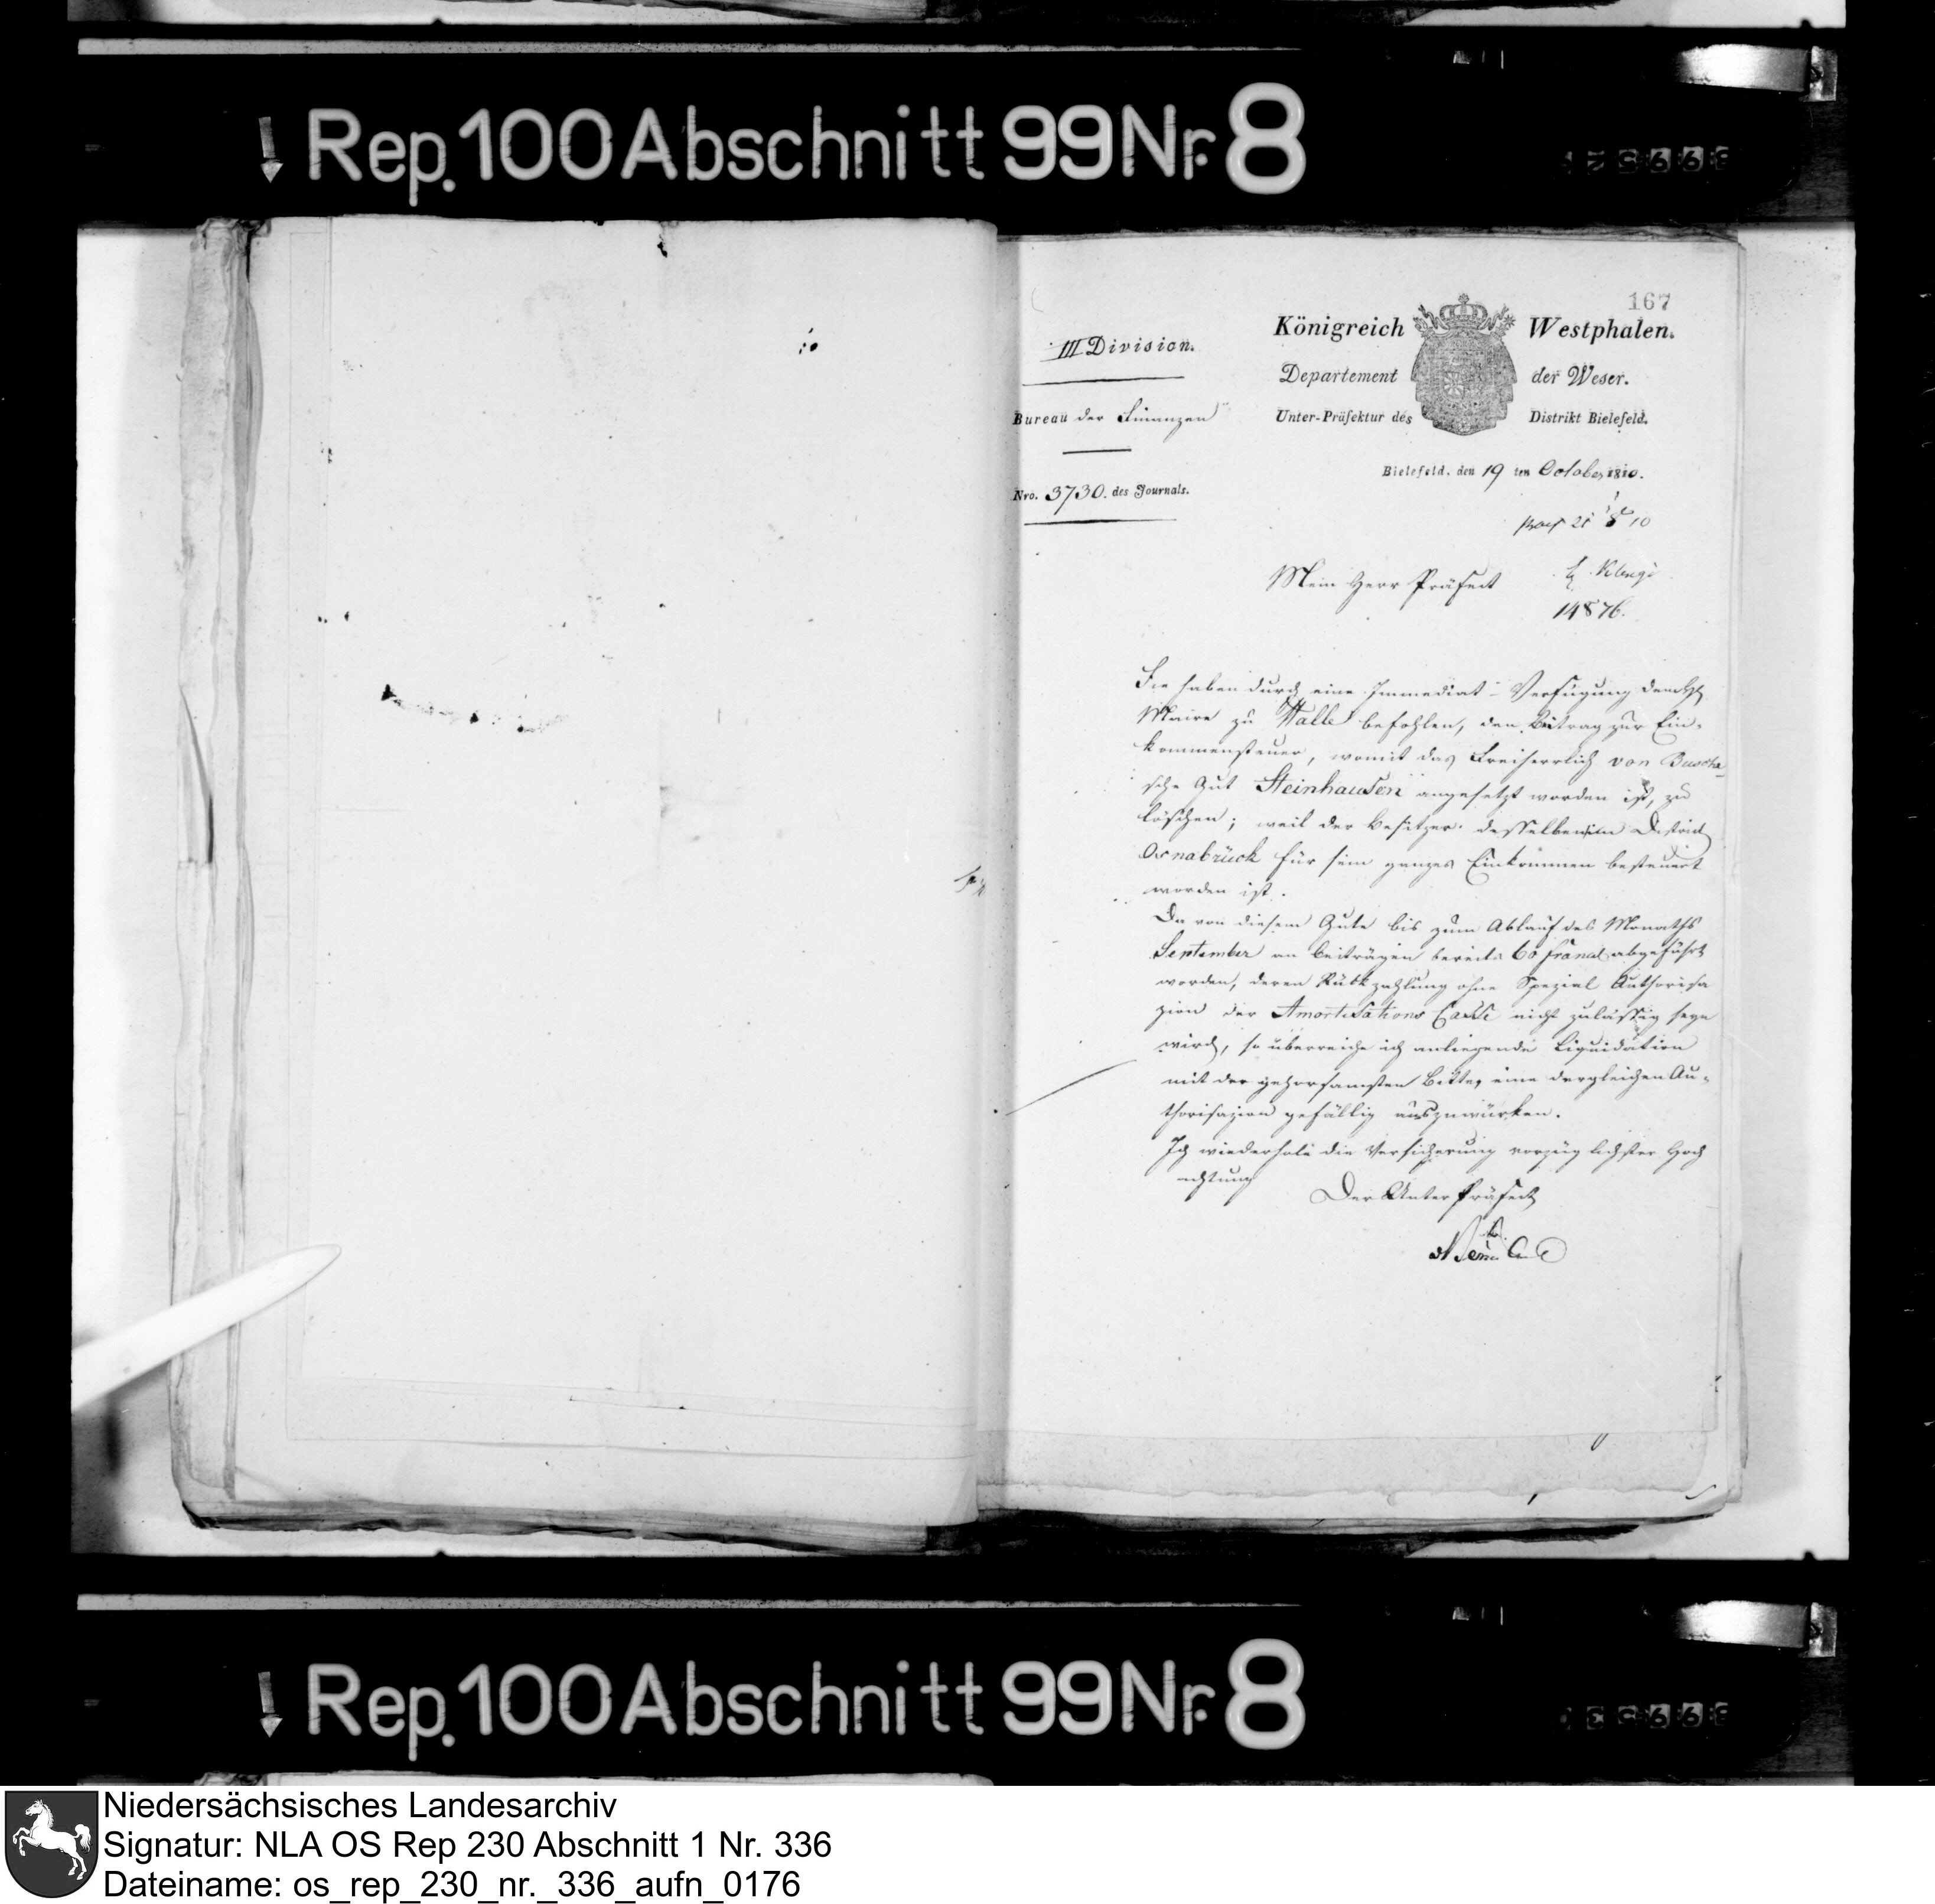 Rep. 100 Abschnitt 99 Nr. 8
167
III Division.
Bureau der Finanzen
Nro. 3730. des Journals.
Königreich Westphalen.
Departement der Weser.
Unter-Präfektur des Distrikt Bielefeld.
Bielefeld, den 19 ten October 1810.
Mein Herr Präfect
14876.
Sie haben durch eine Immediat-Verfügung dem
Maire zu Halle befohlen, den Beitrag zur Ein-
kommensteuer, womit das Freiherrlich von Busche-
sche Gut Steinhausen angesetzt worden ist, zu
löschen; weil der Besitzer desselben im District
Osnabrück für sein ganzes Einkommen besteuert
worden ist.
Da von diesem Gute bis zum Ablauf des Monaths
September an Beiträgen bereits 60 francs abgeführt
worden, deren Rükkzahlung ohne Spezial Authorisa
zion der Amortisations Casse nicht zulässig seyn
wird, so überreiche ich anliegende Liquidation
mit der gehorsamsten Bitte, eine dergleichen Au-
thorisazion gefällig auszuwürken.
Ich wiederhole die Versicherung vorzüglichster Hoch
achtung
Der Unter Präfect
Rep. 100 Abschnitt 99 Nr. 8
Niedersächsisches Landesarchiv
Signatur: NLA OS Rep 230 Abschnitt 1 Nr. 336
Dateiname: os_rep_230_nr._336_aufn_0176